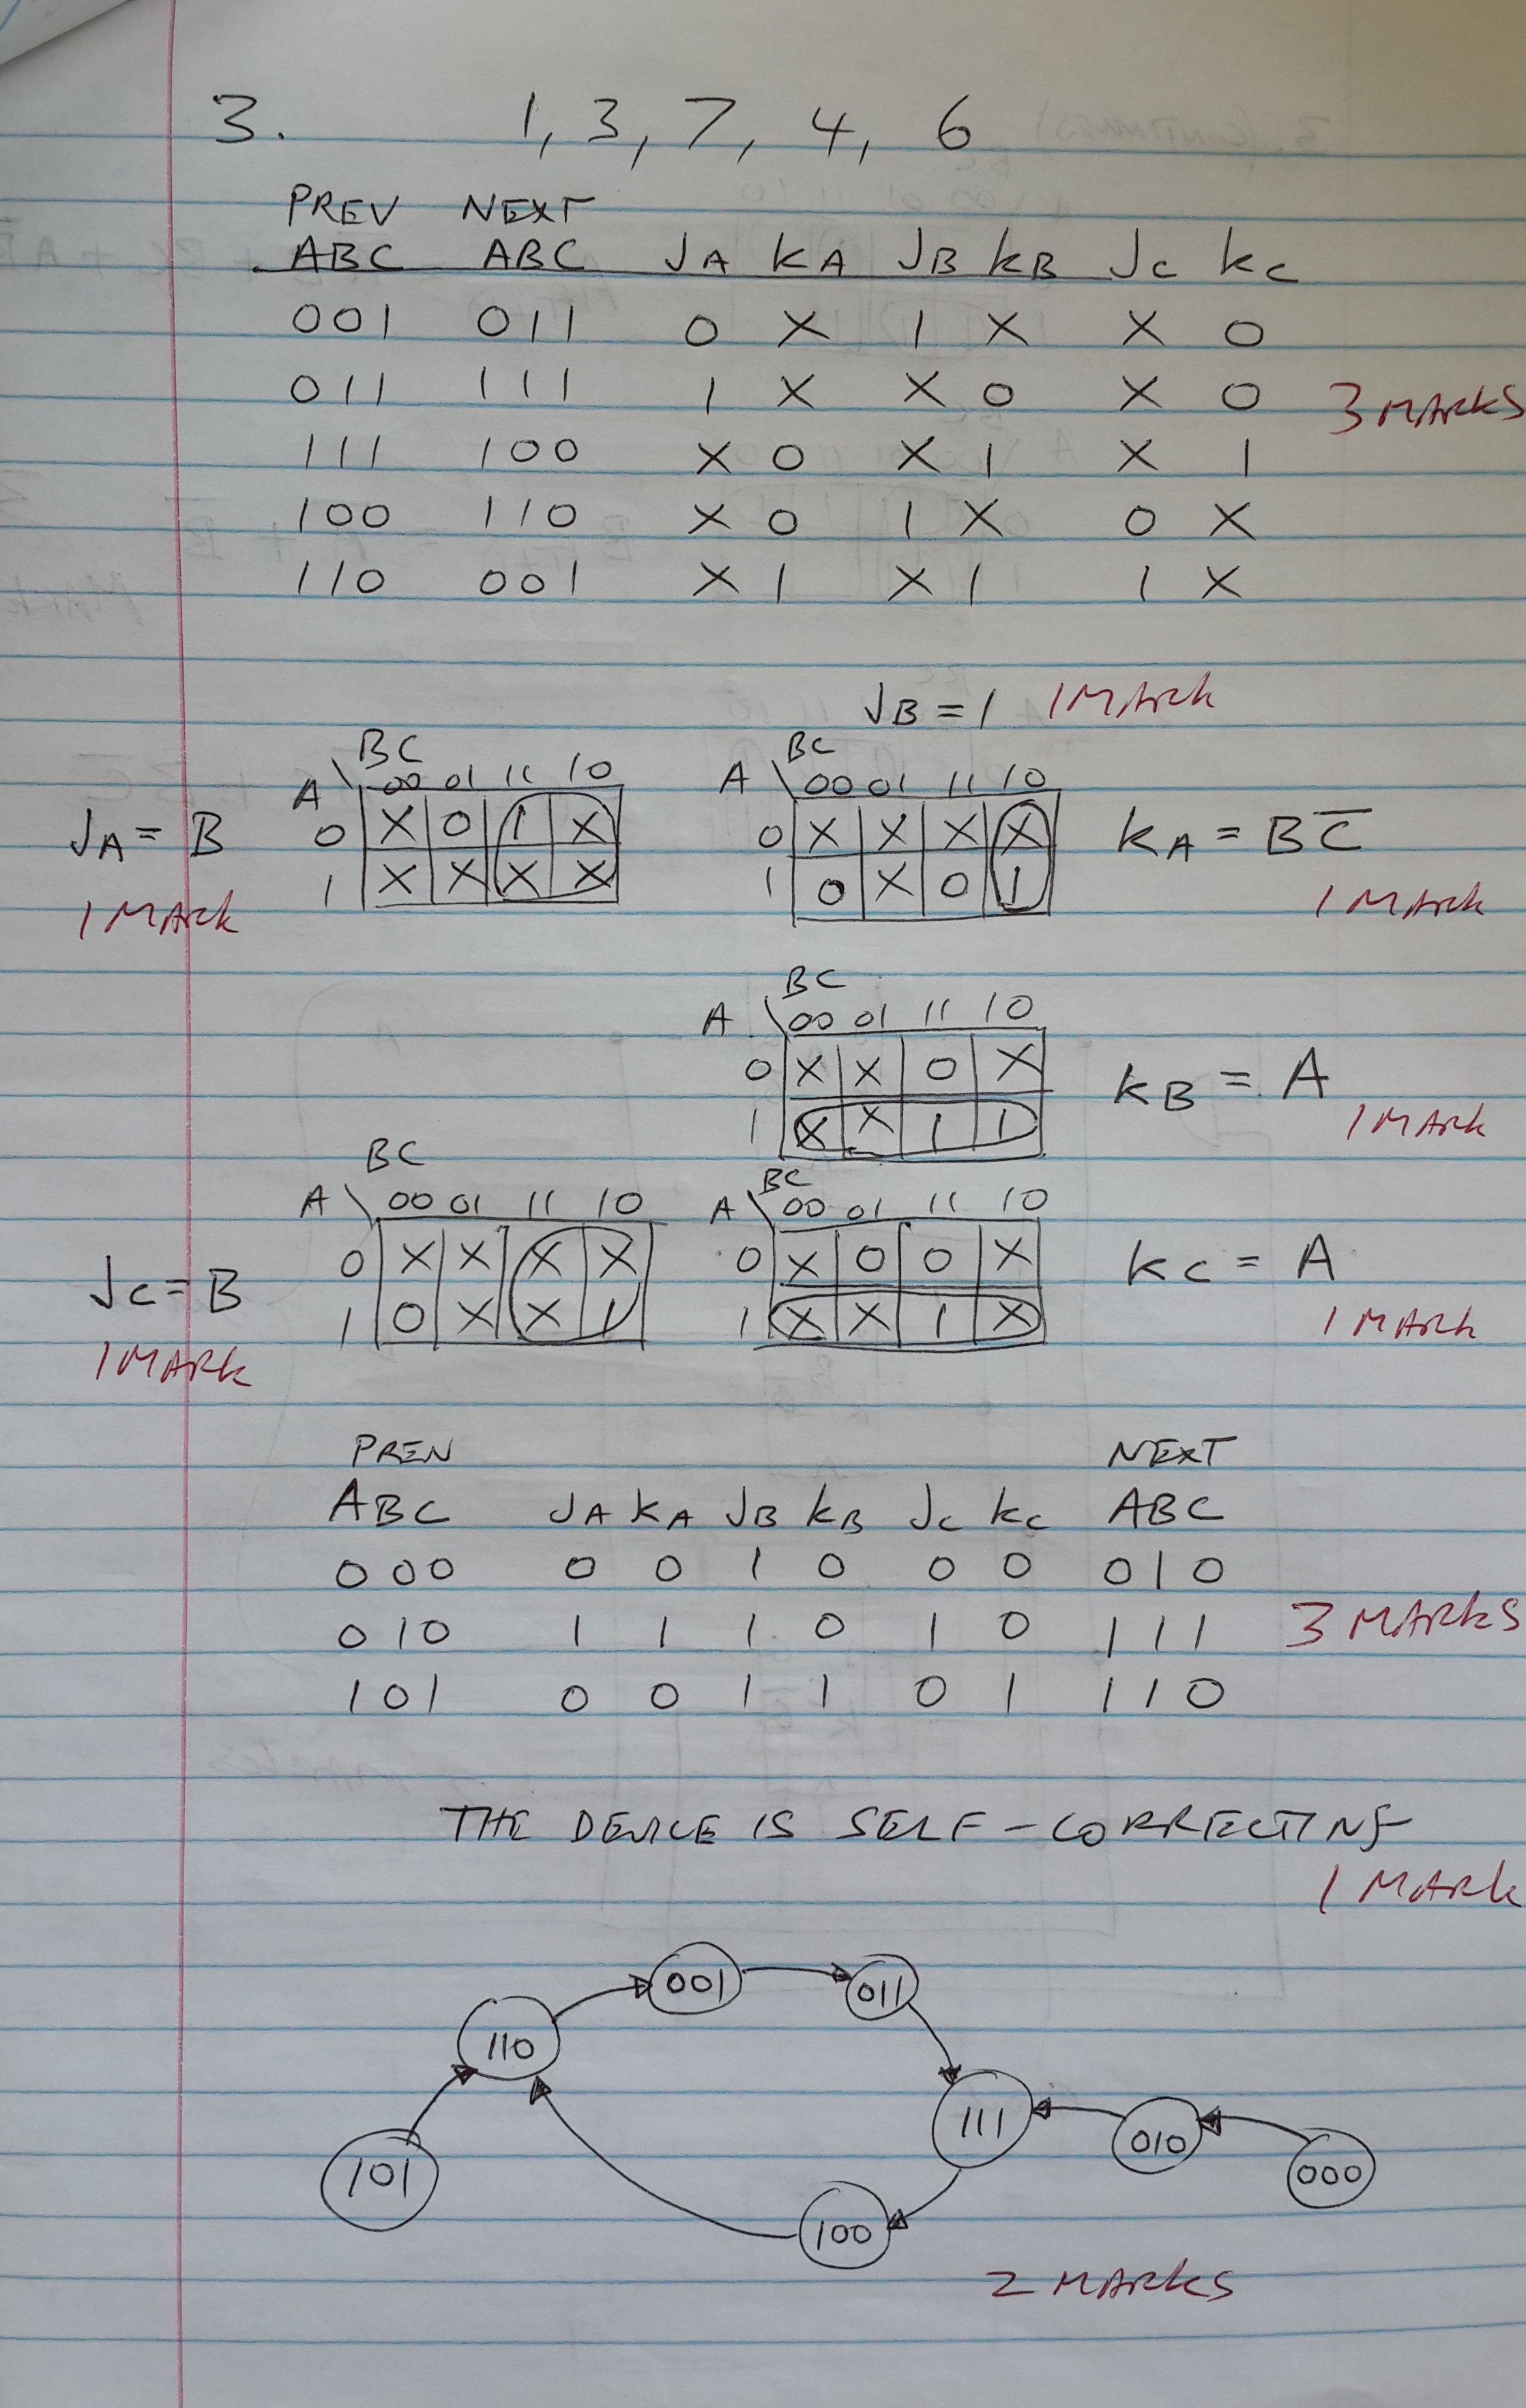 3. 1, 3, 7, 4, 6
PREV NEXT
ABC ABC JA KA JB KB JC KC
001 011 0 X 1 X X 0
011 111 1 X X 0 X 0 3 MARKS
111 100 X 0 X 1 X 1
100 110 X 0 1 X 0 X
110 001 X 1 X 1 1 X
JB = 1 1 MARK
BC BC
A \ 00 01 11 10 A \ 00 01 11 10
JA = B 0 X 0 1 X 0 X X X X KA = BC̅
1 MARK 1 X X X X 1 0 X 0 1 1 MARK
BC
A \ 00 01 11 10
0 X X 0 X KB = A
1 X X 1 1 1 MARK
BC BC
A \ 00 01 11 10 A \ 00 01 11 10
JC = B 0 X X X X 0 X 0 0 X KC = A
1 MARK 1 0 X X 1 1 X X 1 X 1 MARK
PREV NEXT
ABC JA KA JB KB JC KC ABC
000 0 0 1 0 0 0 010
010 1 1 1 0 1 0 111 3 MARKS
101 0 0 1 1 0 1 110
THE DEVICE IS SELF-CORRECTING
1 MARK
001 011
110
111 010 000
101
100
2 MARKS